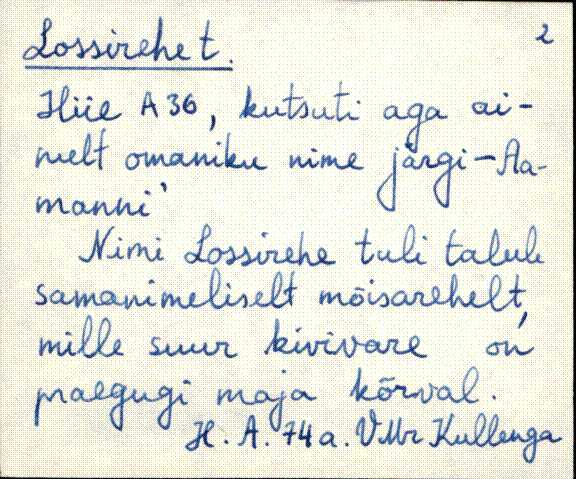 Lossirehe t. 2
Hiie A 36, kutsuti aga ai-
nult omaniku nime järgi - Aa-
manni'
Nimi Lossirehe tuli talule
samanimeliselt mõisarehelt,
mille suur kivivare on
praegugi maja kõrval.
H. A. 74 a. VMr Kullenga